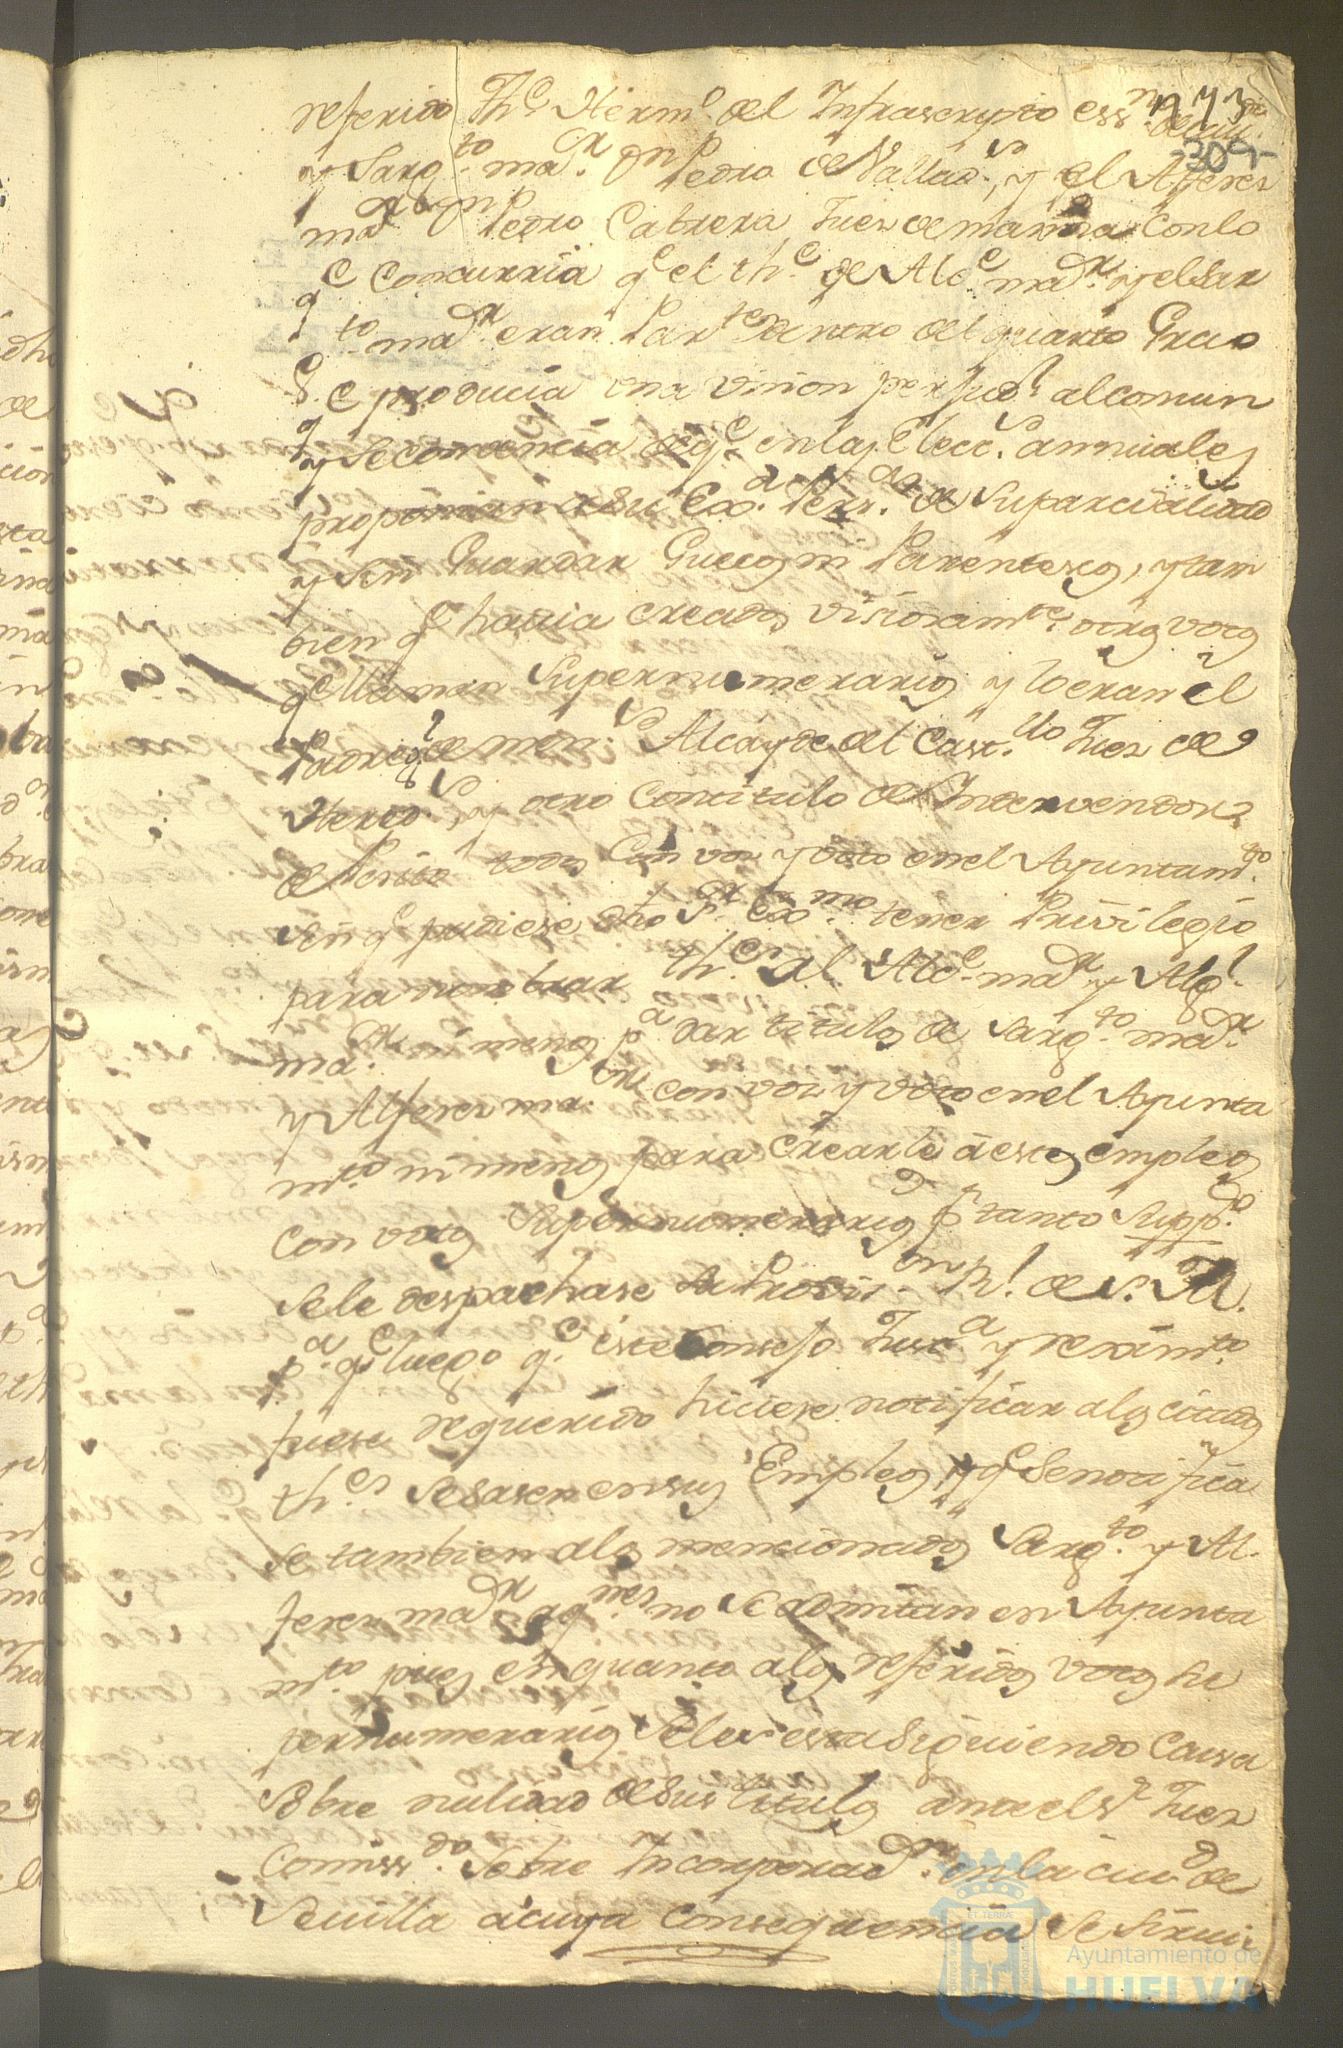 referido Th.e Herm.o del Infraescripto ess.no
173
309
y Sarg.to ma.r Dn Pedro de Vallad.s, y el Alferes
ma.r Dn Pedro Cabrera Juez de marina Con lo
q.e concurria q.e el th.e de Alc.e ma.r y el Sar
g.to ma.r eran Par.tes dentro del quarto Grado
q.e producia una Vnion perjud.l al comun
y se convencia de q.e en las Elecc.s annuales
proponian a Su Ex.a Pers.as de Su parcialidad
y sin Guardar Guecos ni Parentescos, y tam
bien q.e havia creados viciosam.te otros votos
q.e llaman Supernumerarios y lo eran el
Padre de men.s Alcayde del Cast.llo Juez de
y otro Con titulo de Interventor
todos Con voz y voto en el Ayuntam.to
sin q.e pudiese dho S.r Ex.mo tener Privilegio
para nombrar th.es al Alc.e ma.r y Alg.l
ma.r ni menos p.a dar titulos de Sarg.to ma.r
y Alferes ma.r con voz y voto en el Ayunta
m.to ni menos para crearle a estos empleos
con votos Supernumerarios p.r tanto Supp.co
se le despachase la Provis.on R.l de S. A.
p.a q.e luego q.e este Consejo Just.a y rexim.to
fuese requerido hiciese notificar a los citados
th.es sesasen en sus Empleos, y q.e se notifica
se tambien a los mencionados Sarg.to y Al
feres ma.r a q.nes no se admitan en Ayunta
m.to pues en quanto a los referidos votos Su
pernumerarios se les esta Siguiendo Causa
Sobre nulidad de Sus titulos ante el S.r Juez
Comiss.do Sobre Incorporac.on en la ciu.d de
Sevilla a cuya consequencia se sirvi
Ayuntamiento de
HUELVA